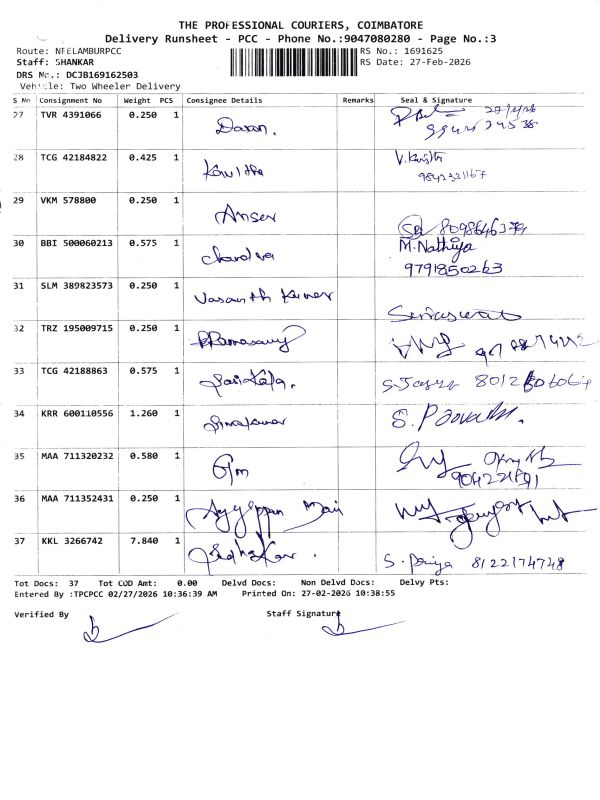 THE PROFESSIONAL COURIERS, COIMBATORE
Delivery Runsheet - PCC - Phone No.:9047080280 - Page No.:3
Route: NEELAMBURPCC RS No.: 1691625
Staff: SHANKAR RS Date: 27-Feb-2026
DRS No.: DCJB169162503
Vehicle: Two Wheeler Delivery
S No Consignment No Weight PCS Consignee Details Remarks Seal & Signature
27 TVR 4391066 0.250 1
28 TCG 42184822 0.425 1 Kavitha
9842331167
29 VKM 578800 0.250 1 Anser
30 BBI 500060213 0.575 1 M.Nathiya
9791850263
31 SLM 389823573 0.250 1 Vasanth Kumar
32 TRZ 195009715 0.250 1 Ramasamy
33 TCG 42188863 0.575 1 Sasikala.
34 KRR 600110556 1.260 1 Sivakumar
35 MAA 711320232 0.580 1
36 MAA 711352431 0.250 1
37 KKL 3266742 7.840 1 S. Priya 8122174748
Tot Docs: 37 Tot COD Amt: 0.00 Delvd Docs: Non Delvd Docs: Delvy Pts:
Entered By :TPCPCC 02/27/2026 10:36:39 AM Printed On: 27-02-2026 10:38:55
Verified By Staff Signature